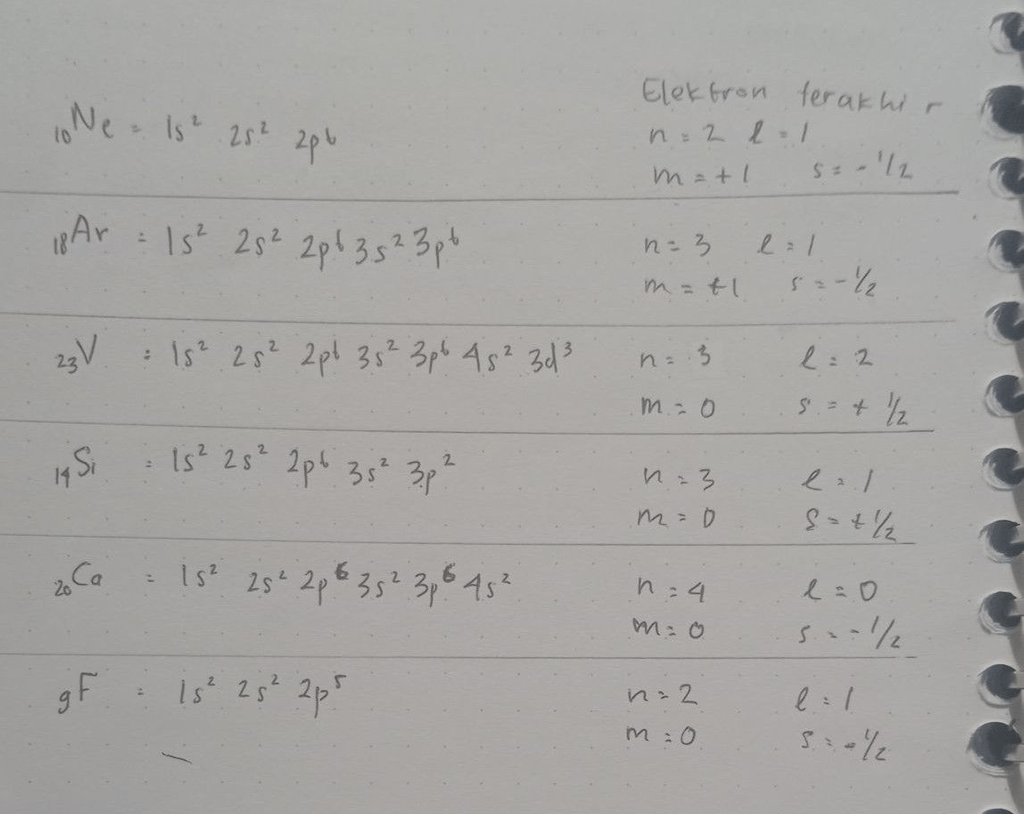 Elektron terakhir
₁₀Ne = 1s² 2s² 2p⁶ n = 2 l = 1
m = +1 s = -1/2
₁₈Ar = 1s² 2s² 2p⁶ 3s² 3p⁶ n = 3 l = 1
m = +1 s = -1/2
₂₃V = 1s² 2s² 2p⁶ 3s² 3p⁶ 4s² 3d³ n = 3 l = 2
m = 0 s = + 1/2
₁₄Si = 1s² 2s² 2p⁶ 3s² 3p² n = 3 l = 1
m = 0 s = +1/2
₂₀Ca = 1s² 2s² 2p⁶ 3s² 3p⁶ 4s² n = 4 l = 0
m = 0 s = -1/2
₉F = 1s² 2s² 2p⁵ n = 2 l = 1
m = 0 s = -1/2